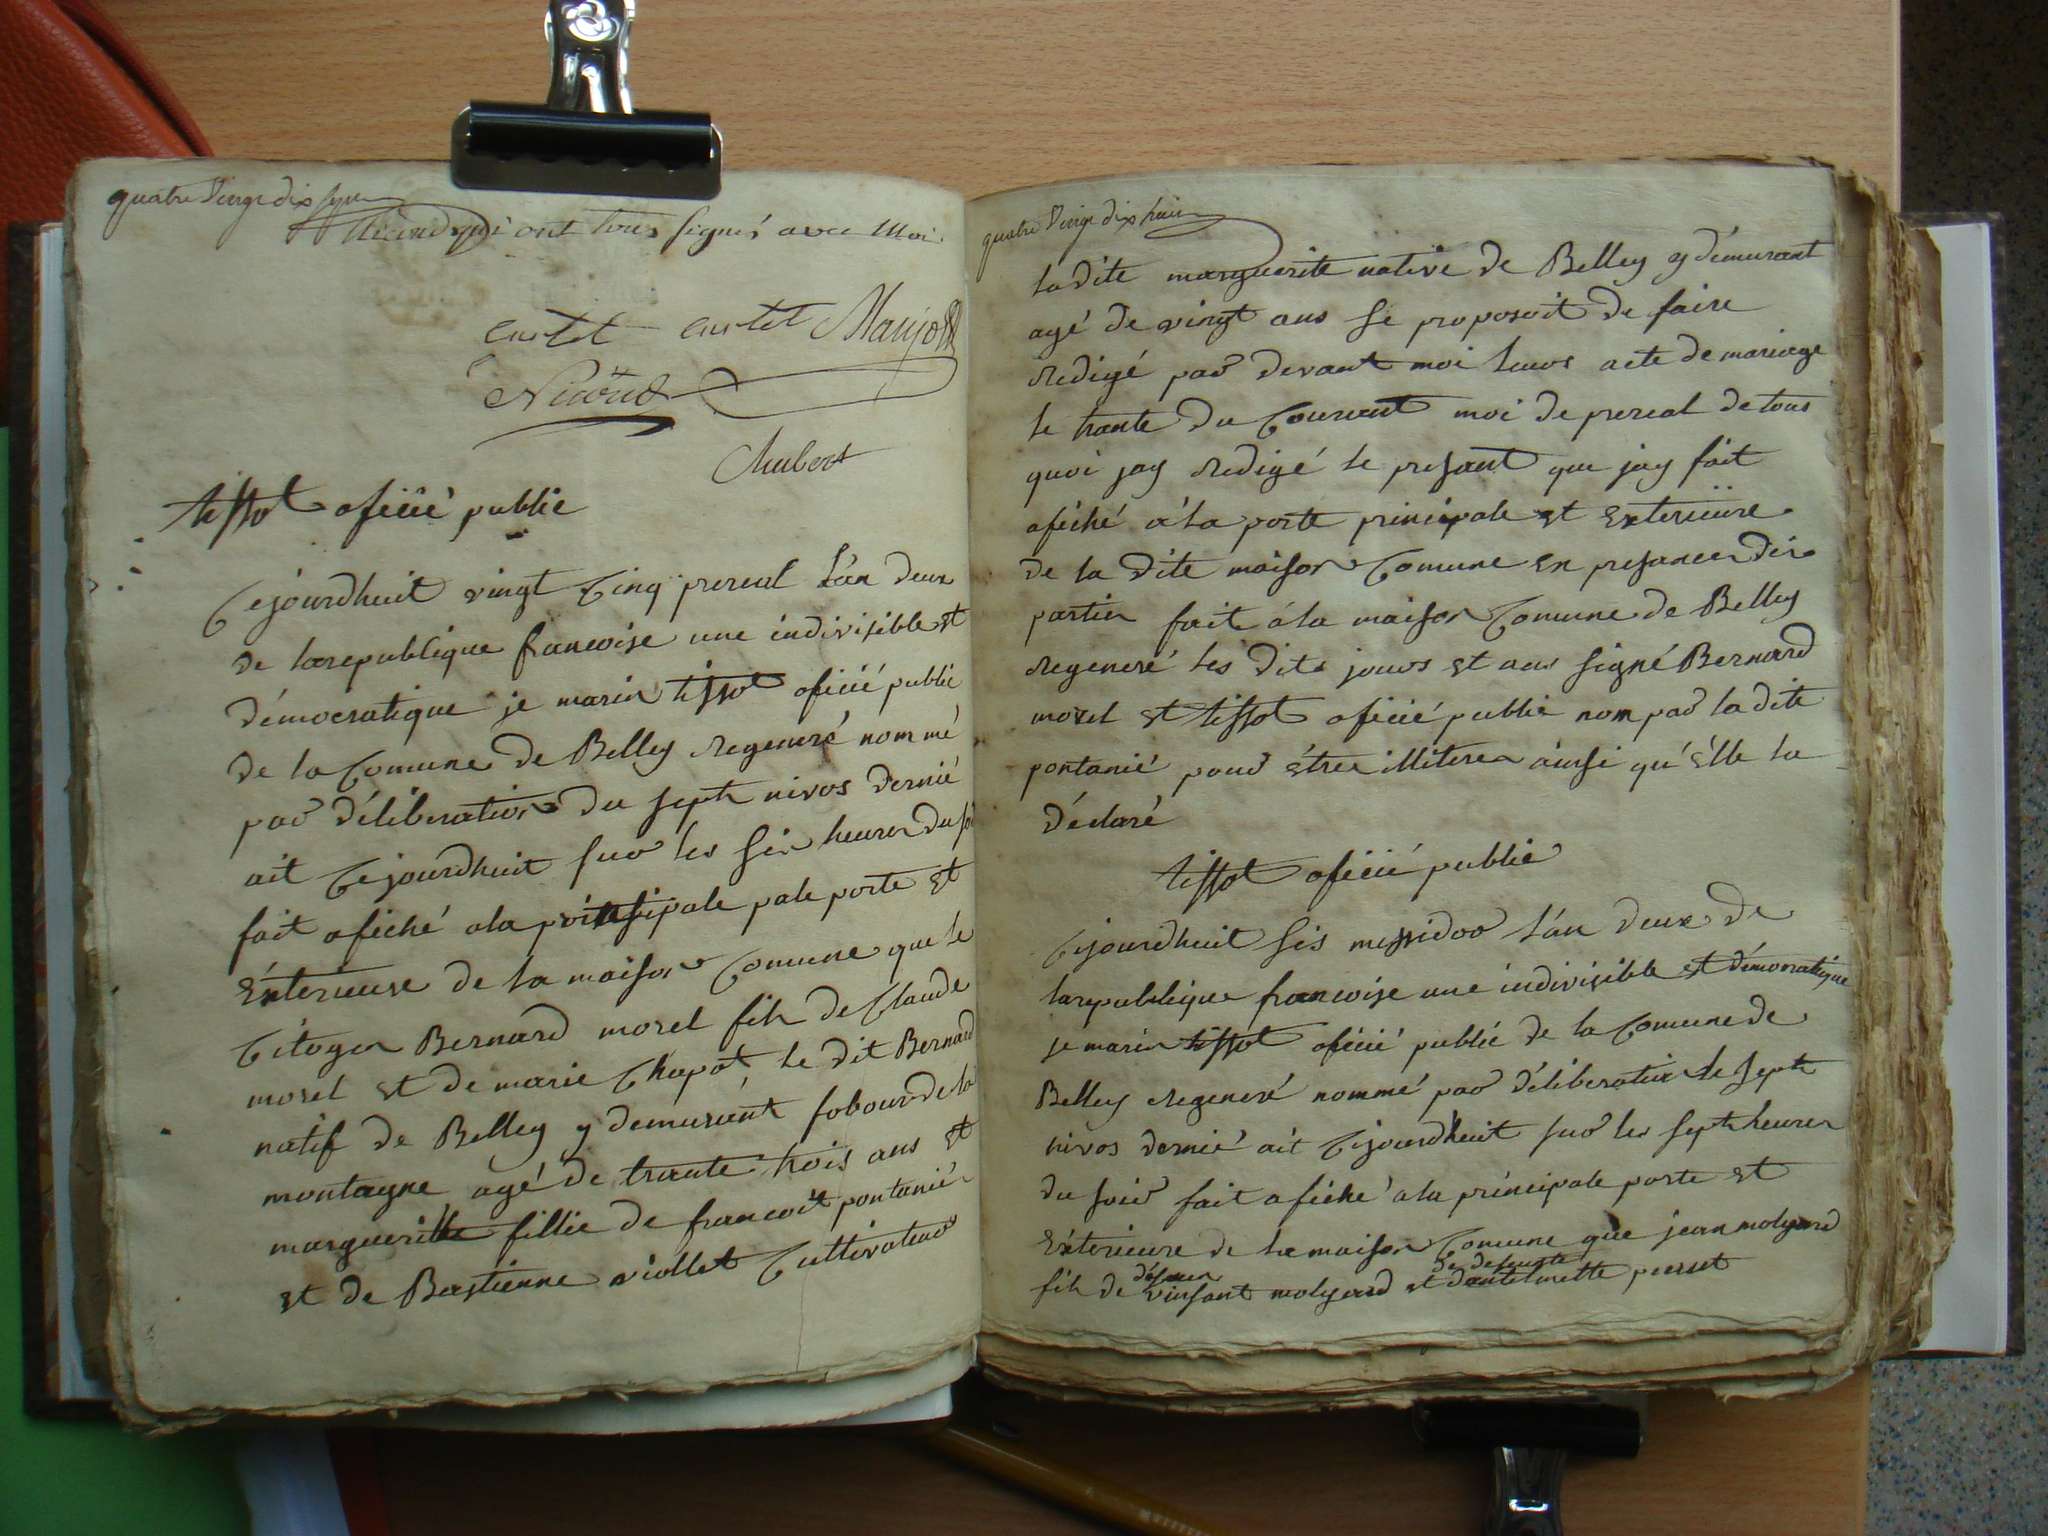 quatre vingt dix sept
qui ont tous signés avec Moi.
curtet curtet Marjoll
Nicoud
Chubert
tissot oficié public
Cejourdhuit vingt Cinq prereal l'an deux
de larepublique francoise une indivisible et
démocratique je marin tissot oficié public
de la Comune de Belley regeneré nommé
par délibération du septe nivos dernié
ait Cejourdhuit sur les six heures du soi
fait afiché ala prinsipale pale porte et
Éxterieure de la maison Comune que le
Citoyen Bernard morel fils de Claude
morel et de marie Chapot le dit Bernard
natif de Belley y demurant fobour de la
montagne agé de trante trois ans et
margueritte fillie de francoit pontanié
et de Bastienne viollet Cultivateur
quatre vingt dix huit
la dite marguerite native de Belley y démurant
agé de vingt ans se proposoit de faire
redigé par devant moi leurs acte de mariage
le trante du Courant moi de prereal de tous
quoi jay redigé le presant que jay fait
afiché a la porte principale et exterieure
de la dite maison Comune en presance des
parties fait á la maison Comune de Belley
regeneré les dits jours et ans signé Bernard
morel et tissot oficié public nom par la dite
pontanié pour étre illiteree ainsi qu'élle la
déclaré
tissot oficié public
Cejourdhuit sis messidor l'an deux de
larepublique francoise une indivisible et démoratique
je marin tissot oficié public de la Comune de
Belley regeneré nommé par délibération le septe
nivos dernié ait Cejourdhuit sur les septe heures
du soir fait afiché a la principale porte et
Éxterieure de la maison Comune que jean molyard
défeun de defeunte
fils de vinsant molyard et dantelmette persset